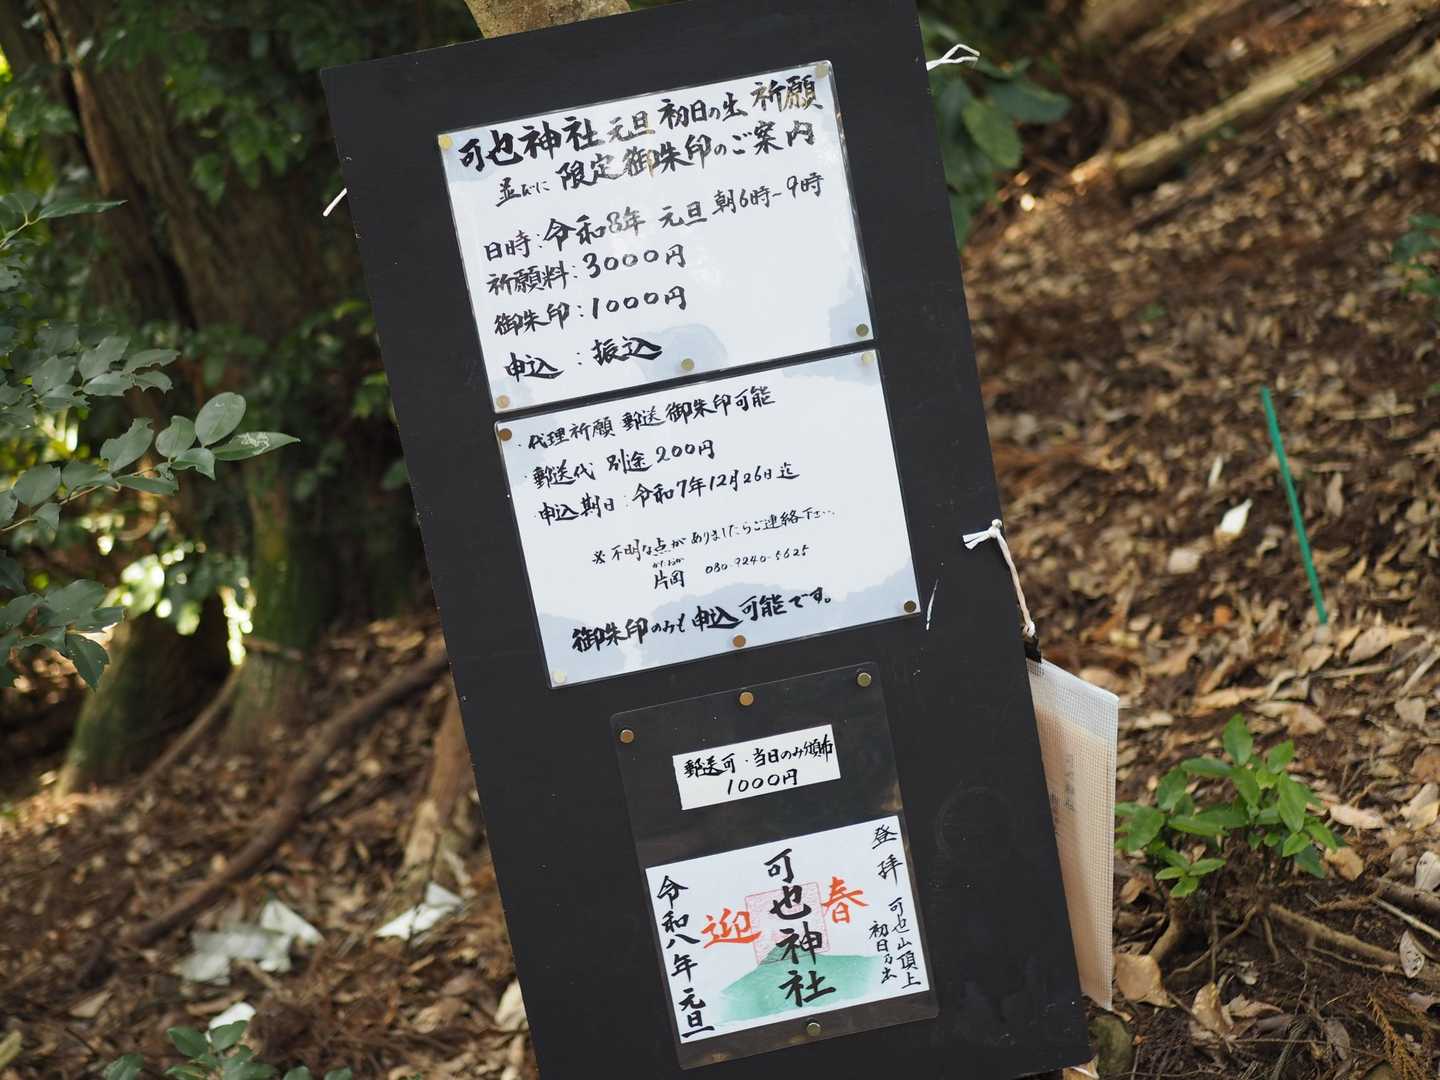 可也神社 元旦 初日の出 祈願
並びに 限定御朱印のご案内
日時:令和8年 元旦 朝6時~9時
祈願料:3000円
御朱印:1000円
申込 :振込
・代理祈願 郵送 御朱印可能
・郵送代 別途 200円
・申込期日:令和7年12月26日迄
※不明な点がありましたらご連絡下さい。
かたおか
片岡 080-9240-5625
御朱印のみも申込可能です。
郵送可・当日のみ頒布
1000円
登拝 可也山頂上
初日乃出
迎春
可也神社
令和八年 元旦